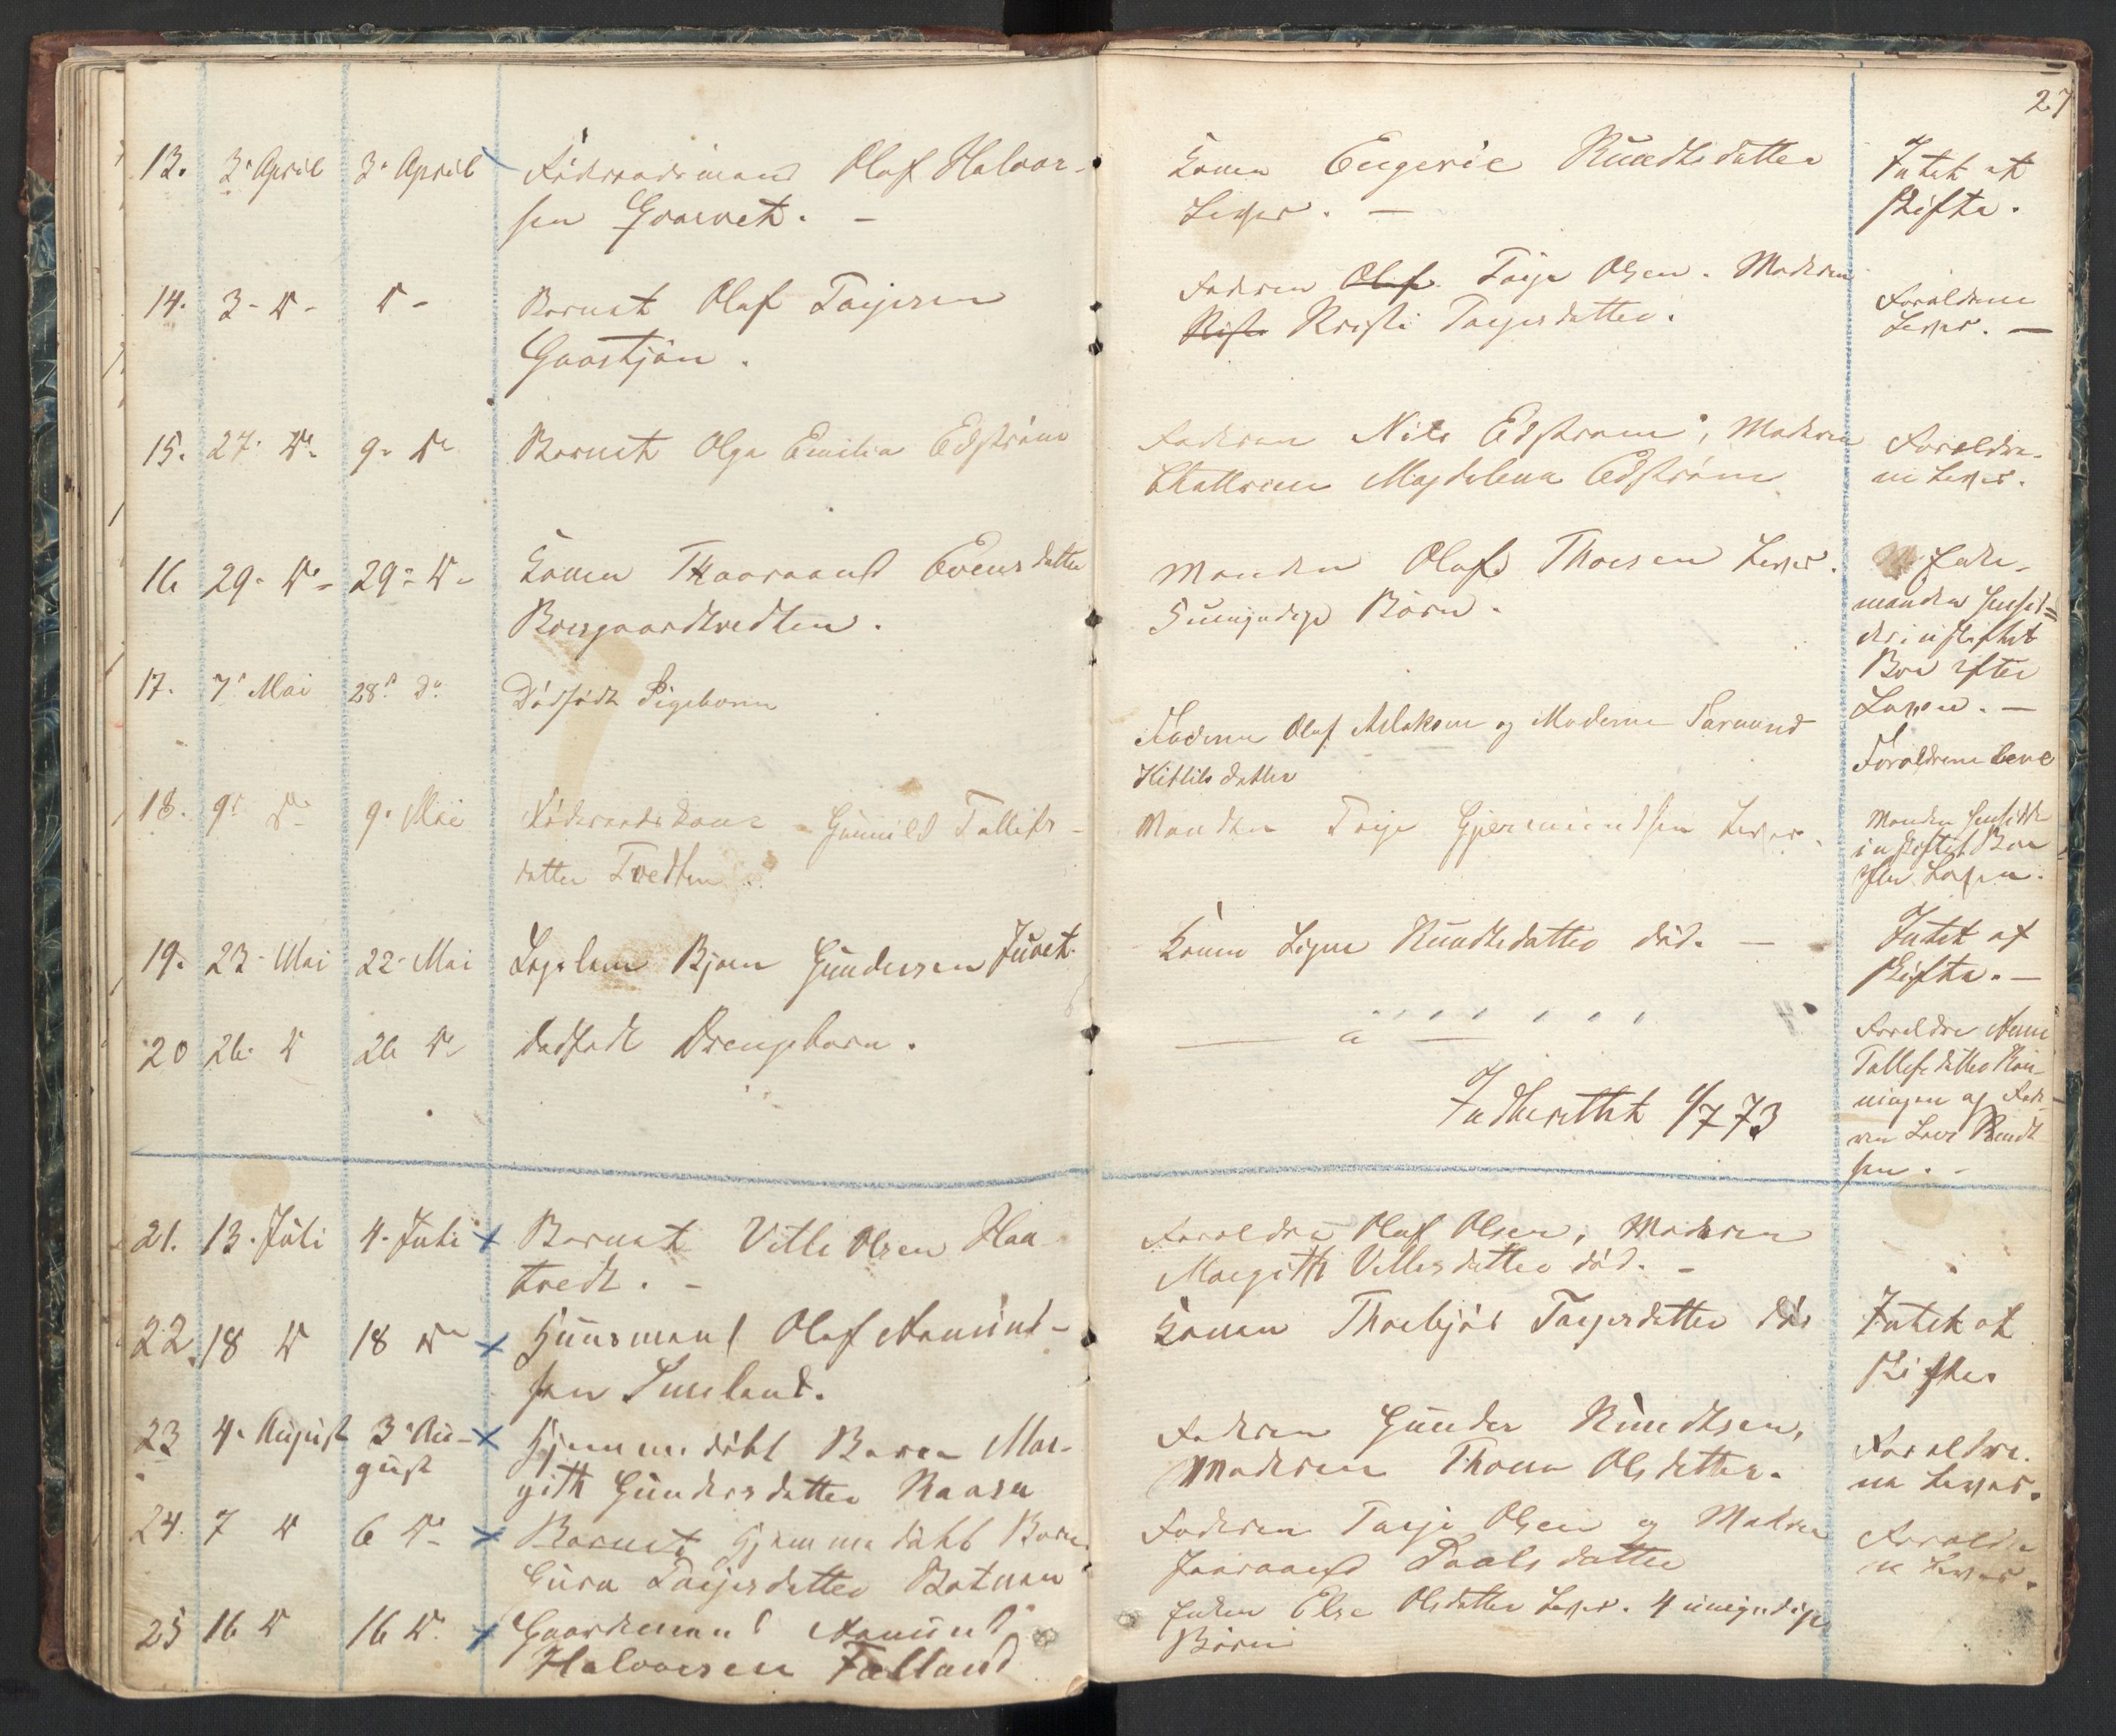 27
13. 3. April 3. April Föderaadsmand Olaf Halvor-
sen Graavet. –
Konen Engerie Knudtsdatter
Lever. –
Intet at
skifte.
14. 3 – D – D –
Barnet Olaf Tarjesen
Gaastjön.
Faderen Olaf Tarje Olsen. Moderen
Kristi Tarjesdatter.
Foraldrene
Lever. –
15. 27. D. 9. D.
Barnet Olga Emilia Edström
Faderen Nils Edstrøm, Moderen
Magdelena Edström
Foreldre-
ne Lever.
16 29. D. – 29. D. –
Konen Taaraand Evensdatter
Manden Olaf Thorsen Lever.
5 umyndige Börn.
Enke-
manden hensid-
der i uskiftet
Boe efter
Loven. –
17. 7. Mai 28. do
Dödfödt Pigebarn
Faderen Olaf Aslaksen og Moderen Taraand
Kittilsdatter
Foraldrene leve
18. 9. D. 9. Mai
Föderaadskone Gunnild Tallefs-
datter Tvedten
Manden Tarje Gjermundsen Lever.
Manden hensidder
i uskiftet Boe
efter Loven.
19. 23. Mai 22. Mai
Lægslem Bjørn Gundersen Juvet.
Konen Signe Knudtsdatter död. –
Intet at
skifte. –
20 26. D 26 D.
dødfødt Drengebarn.
Foreldre Anne
Tallefsdatter
og Fade-
ren Knudt-
sen. –
Indberettet 1/7 73
21. 13. Juli 4. Juli x Barnet Villi Olsen Haa-
tvedt. –
Foreldre Olaf Olsen, Moderen
Margith Villesdatter död. –
22. 18 D 18 D. x Huusmand Olaf Aamund-
sen
Konen Thorbjør Tarjesdatter död
Intet at
skifte.
23 4. August 3. Au-
gust
x Hjemmedöbt Barn Mar-
gith Gundersdatter Raasa
Faderen Gunder Knudtsen,
Moderen Thone Olsdatter.
Foraldre-
ne Lever.
24. 7 D 6 D. – x Barnet Hjemmedöbt Barn
Gura Tarjesdatter Botnen
Faderen Tarje Olsen og Moderen
Jooraand Paalsdatter
Foraldre
ne Lever.
25 16 D 16 D. x Gaardemand Aamund
Halvorsen Fælland
Enken Else Olsdatter Lever. 4 umyndige
Börn